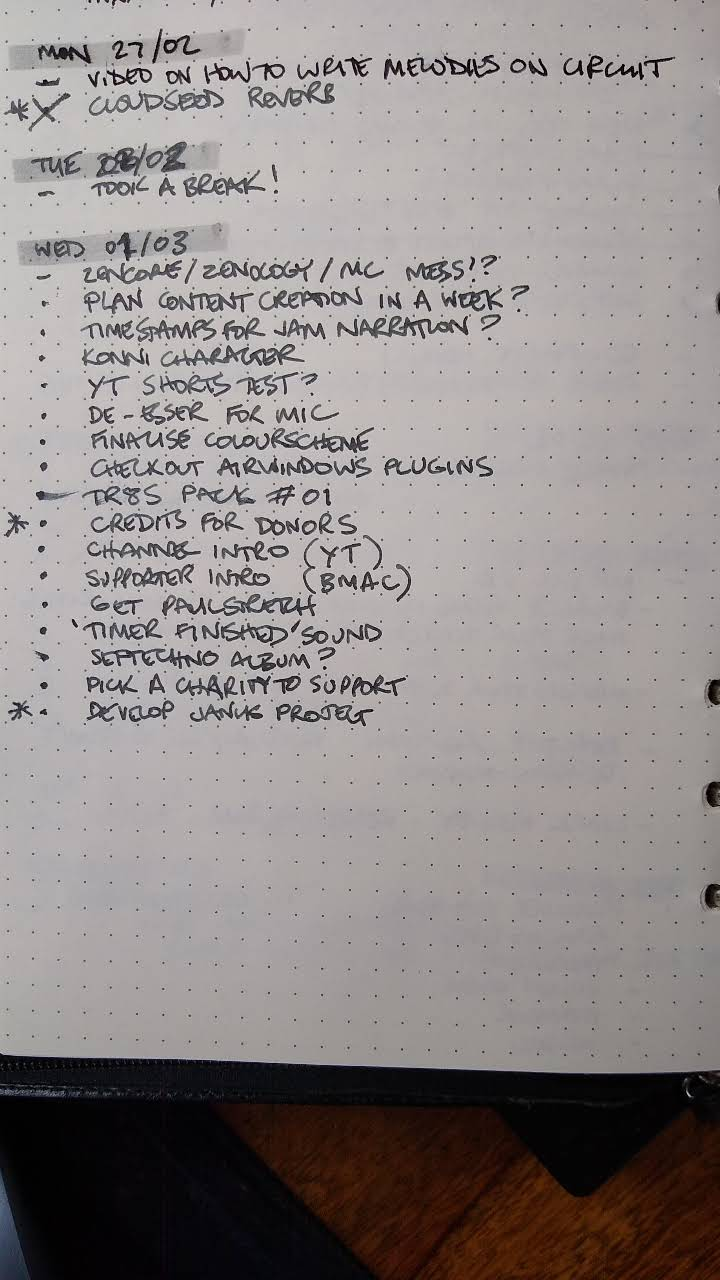 MON 27/02
- VIDEO ON HOW TO WRITE MELODIES ON CIRCUIT
* X CLOUDSEED REVERB
TUE 28/02
- TOOK A BREAK!
WED 01/03
- ZENCORE/ZENOLOGY/MC MESS!?
• PLAN CONTENT CREATION IN A WEEK?
• TIMESTAMPS FOR JAM NARRATION?
• KONNI CHARACTER
• YT SHORTS TEST?
• DE-ESSER FOR MIC
• FINALISE COLOURSCHEME
• CHECKOUT AIRWINDOWS PLUGINS
- TR8S PACK #01
* • CREDITS FOR DONORS
• CHANNEL INTRO (YT)
• SUPPORTER INTRO (BMAC)
• GET PAULSTRETCH
• 'TIMER FINISHED' SOUND
• SEPTECHNO ALBUM?
• PICK A CHARITY TO SUPPORT
* • DEVELOP JANUS PROJECT